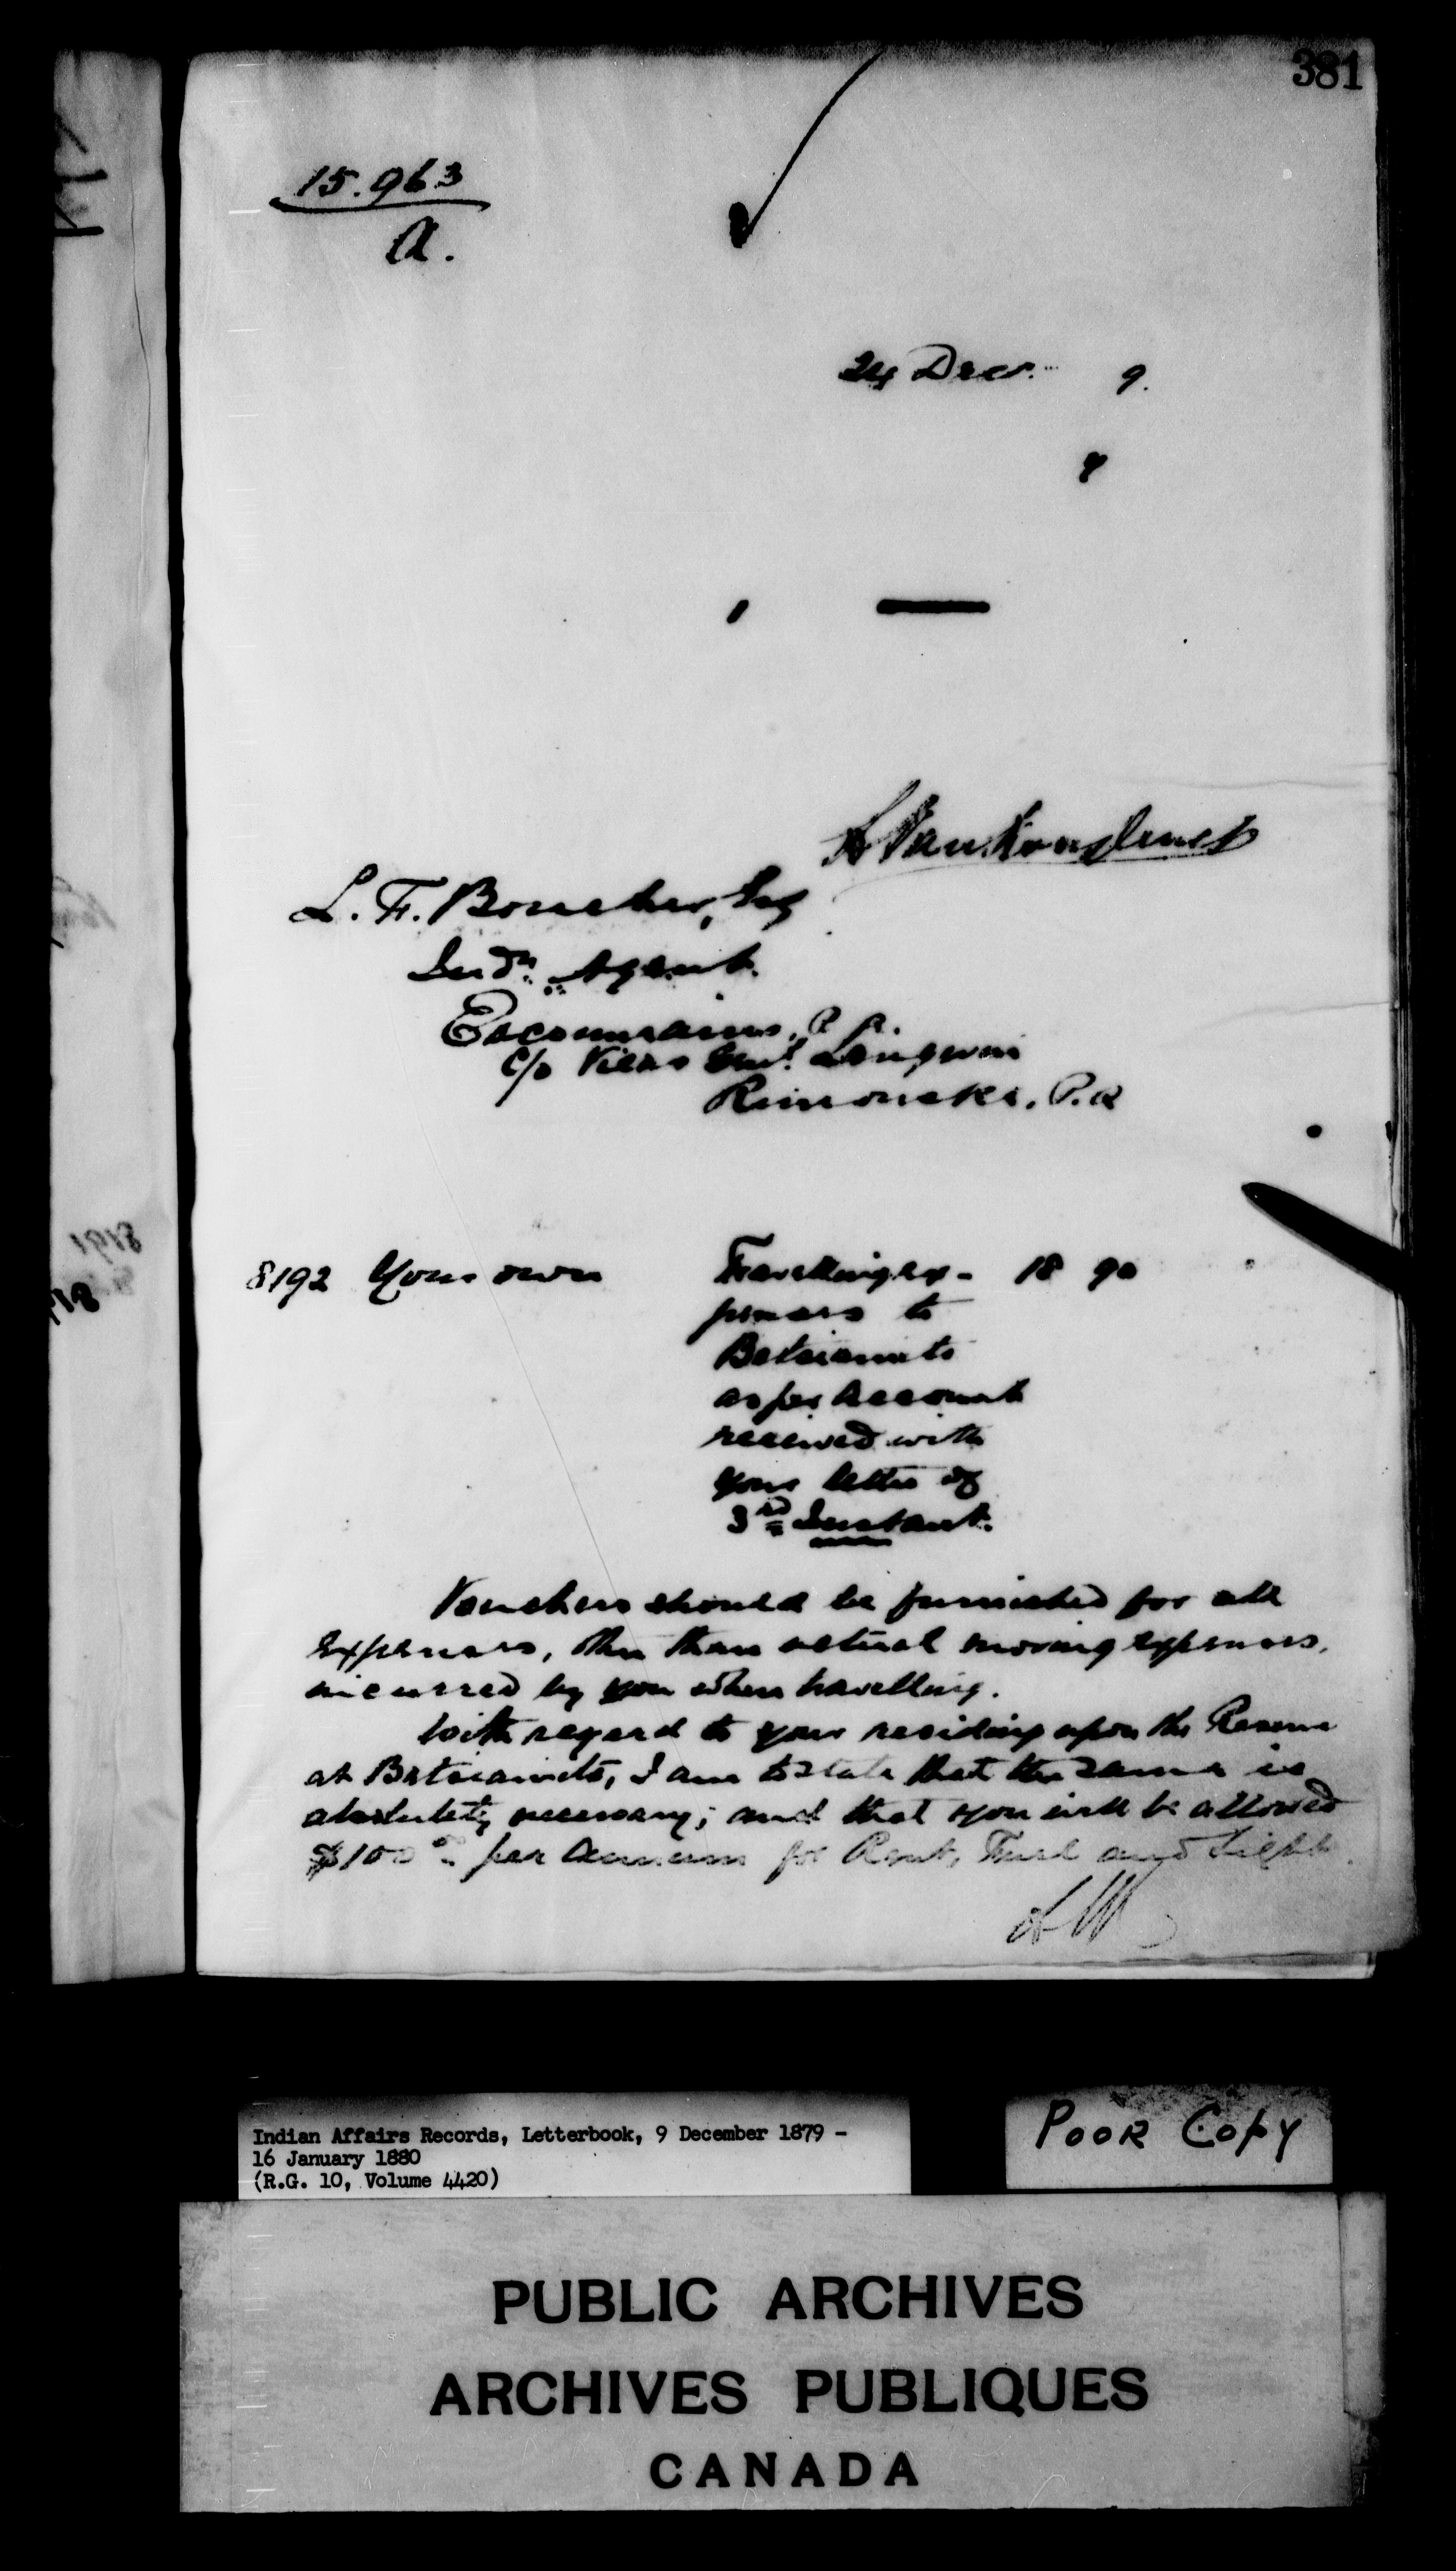 381
15.963
A.
24 Decr. 9.
L. F. Boucher, Esq
Indn. Agent.
Escoumains, P.Q.
c/o Vicar Genl. Langevin
Rimouski. P.Q
8192 Your own Travelling ex- 18 90
penses to
Betsiamits
as per account
received with
your letter of
3rd Instant.
Vouchers should be furnished for all
expenses, other than actual moving expenses,
incurred by you when travelling.
With regard to your residing upon the Reserve
at Betsiamits, I am to state that the same is
absolutely necessary; and that you will be allowed
$100 00 per Annum for Rent, Fuel and Light.
8191
Indian Affairs Records, Letterbook, 9 December 1879 -
16 January 1880
(R.G. 10, Volume 4420)
POOR COPY
PUBLIC ARCHIVES
ARCHIVES PUBLIQUES
CANADA